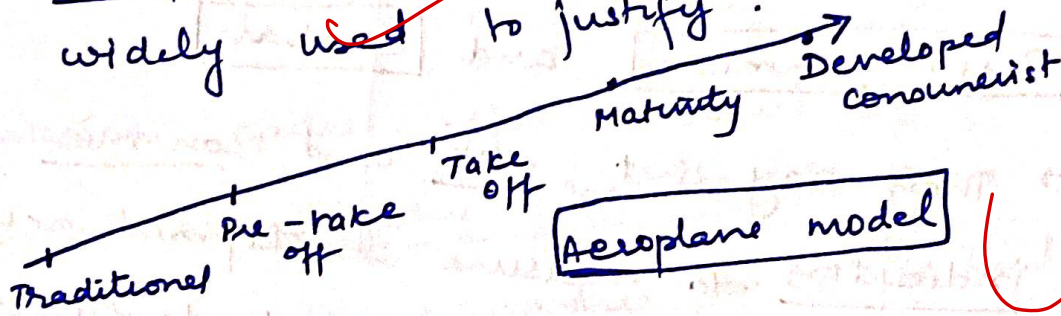 widely used to justify :
Developed
consumerist
Maturity
Take
off
Pre-take
off
Traditional
Aeroplane model